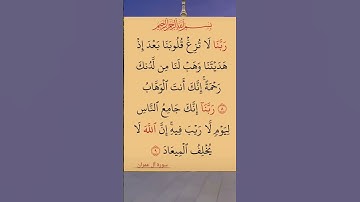 بسم الله الرحمن الرحيم
رَبَّنَا لَا تُزِغْ قُلُوبَنَا بَعْدَ إِذْ
هَدَيْتَنَا وَهَبْ لَنَا مِن لَّدُنكَ
رَحْمَةً ۚ إِنَّكَ أَنتَ الْوَهَّابُ
٨ رَبَّنَآ إِنَّكَ جَامِعُ النَّاسِ
لِيَوْمٍ لَّا رَيْبَ فِيهِ ۚ إِنَّ اللَّهَ لَا
يُخْلِفُ الْمِيعَادَ ٩
سورة آل عمران